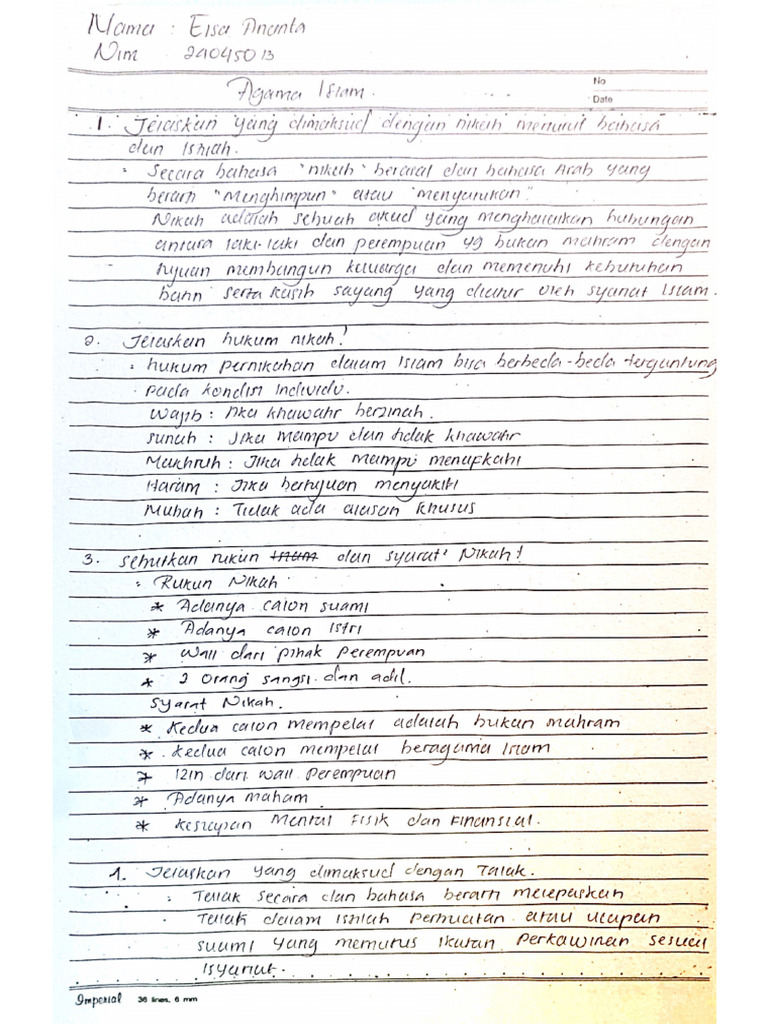 Nama : Eisa Ananta
Nim 24045013
No
Agama Islam.
Date
1. Jelaskan yang dimaksud dengan nikah menurut bahasa
dan Istilah.
: Secara bahasa "nikah" berasal dari bahasa Arab yang
berarti "Menghimpun" atau "menyatukan."
Nikah adalah sebuah akad yang menghalalkan hubungan
antara laki-laki dan perempuan yg bukan mahram dengan
tujuan membangun keluarga dan memenuhi kebutuhan
batin serta kasih sayang yang diatur oleh syariat Islam.
2. Jelaskan hukum nikah!
: hukum pernikahan dalam Islam bisa berbeda-beda tergantung
pada kondisi individu.
Wajib : Jika khawatir berzinah.
sunah : Jika mampu dan tidak khawatir
Makhruh : Jika tidak mampu menafkahi
Haram : Jika bertujuan menyakiti
Mubah : Tidak ada alasan khusus
3. Sebutkan rukun Islam dan syarat² Nikah!
: Rukun Nikah
* Adanya calon suami
* Adanya calon Istri
* Wali dari pihak Perempuan
* 2 Orang sangsi dan adil.
Syarat Nikah.
* Kedua calon mempelai adalah bukan mahram
* Kedua calon mempelai beragama Islam
* Izin dari wali Perempuan
* Adanya maham
* Kesiapan Mental Fisik dan Finansial.
1. Jelaskan yang dimaksud dengan Talak.
: Talak secara dari bahasa berarti melepaskan
Talak dalam Istilah Perbuatan atau ucapan
suami yang memutus Ikatan Perkawinan sesuai
Isyariat.
Imperial 36 lines, 6 mm